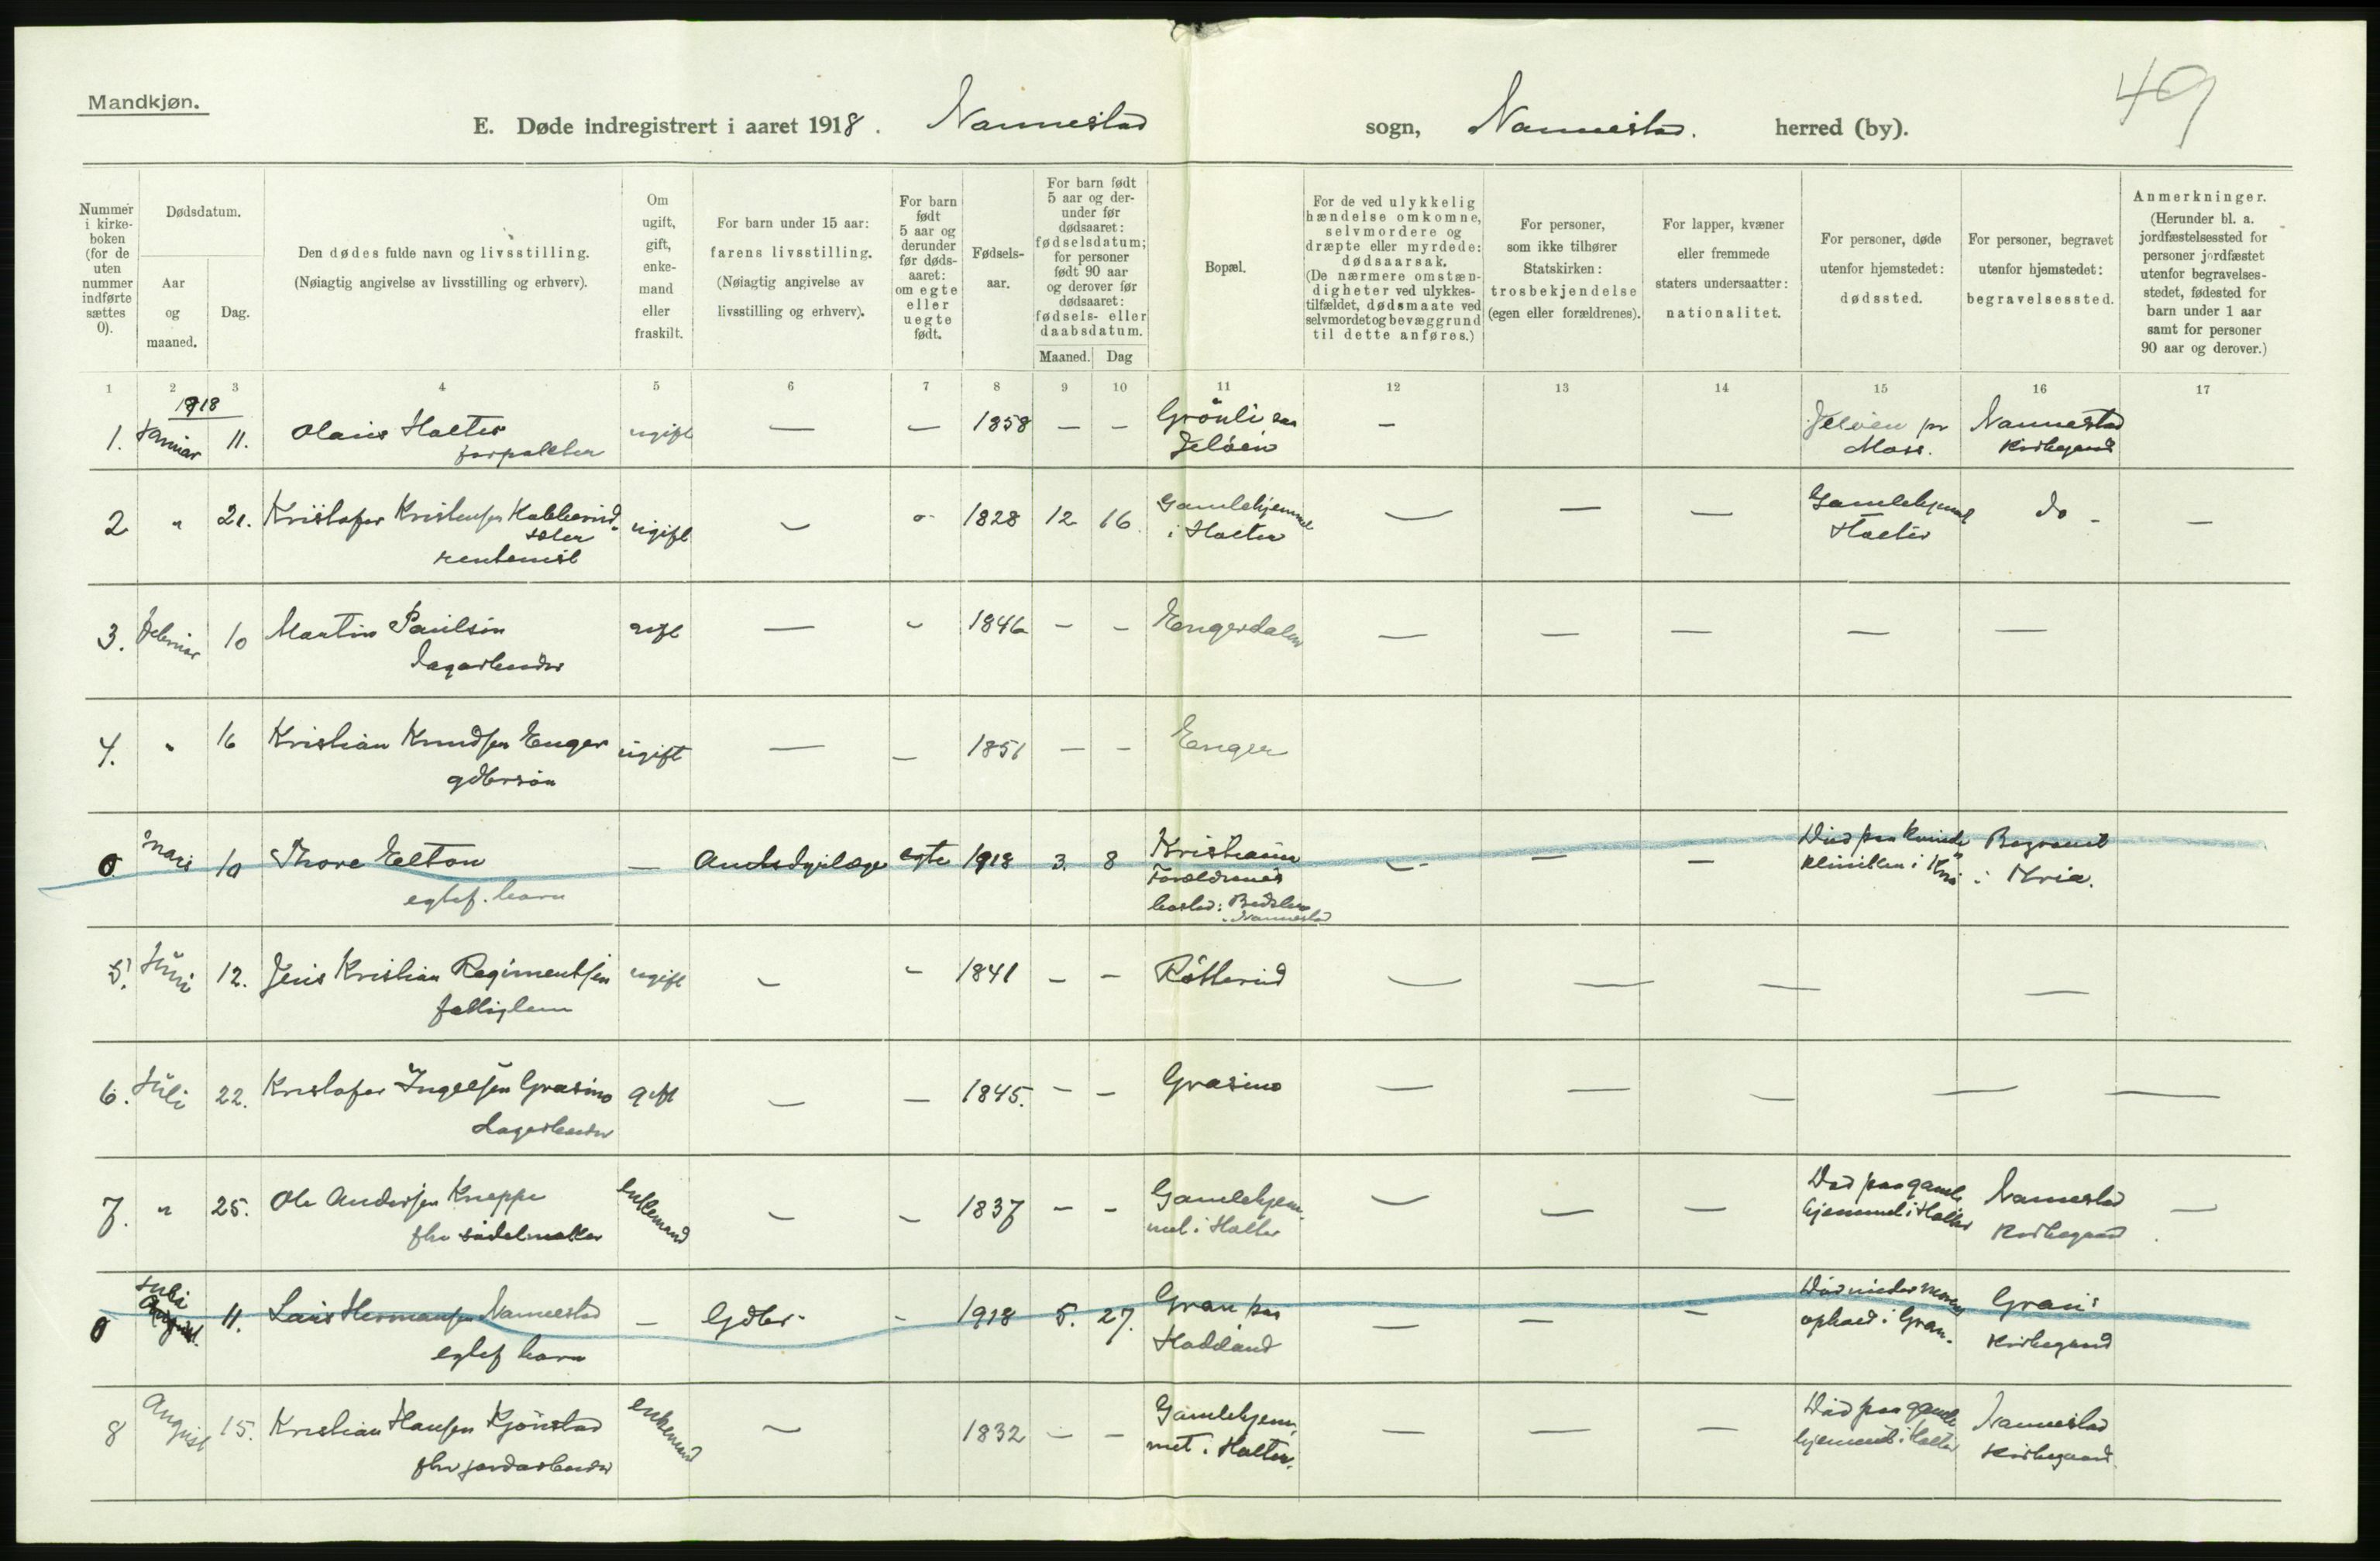 49
Mandkjøn.
E. Døde indregistrert i aaret 1918. Nannestad sogn, Nannestad. herred (by).
Nummer i kirkeboken (for de uten nummer indførte sættes 0).
Dødsdatum.
Aar og maaned.
Dag.
Den dødes fulde navn og livsstilling.
(Nøiagtig angivelse av livsstilling og erhverv).
Om ugift, gift, enkemand eller fraskilt.
For barn under 15 aar: farens livsstilling. (Nøiagtig angivelse av livsstilling og erhverv).
For barn født 5 aar og derunder før dødsaaret: om egte eller uegte født.
Fødselsaar.
For barn født 5 aar og derunder før dødsaaret: fødselsdatum; for personer født 90 aar og derover før dødsaaret: fødsels- eller daabsdatum.
Maaned. Dag
Bopæl.
For de ved ulykkelig hændelse omkomne, selvmordere og dræpte eller myrdede: dødsaarsak. (De nærmere omstændigheter ved ulykkestilfældet, dødsmaate ved selvmordet og bevæggrund til dette anføres.)
For personer, som ikke tilhører Statskirken: trosbekjendelse (egen eller forældrenes).
For lapper, kvæner eller fremmede staters undersaatter: nationalitet.
For personer, døde utenfor hjemstedet: dødssted.
For personer, begravet utenfor hjemstedet: begravelsessted.
Anmerkninger. (Herunder bl. a. jordfæstelsessted for personer jordfæstet utenfor begravelsesstedet, fødested for barn under 1 aar samt for personer 90 aar og derover.)
1 2 3 4 5 6 7 8 9 10 11 12 13 14 15 16 17
1918
1. Januar 11. Olaus Holter ugift — — 1858 — — Grönli paa — Jelöen pr Nannestad
forpakter Jelöen Moss. Kirkegaard
2 " 21. Kristofer Kristensen ugift — — 1828 12 16 Gamlehjemmet — — — Gamlehjemmet do - —
rentenist i Holter Holter
3. Februar 10 Martin Paulsen gift — — 1846 — — Engerdalen — — — — —
dagarbeider
4. " 16 Kristian Knudsen Enger ugift — — 1851 — — Enger
gdbrsön
0 Mars 10 Thore Eelton — Amtsdyrlæge egte 1918 3. 8 Kristiania — — — Död paa Kvinde Begravet
egtef. barn Forældrenes klinikken i Kra i Kria.
bosted: Nannestad
5. Juni 12. Jens Kristian Regimentsen ugift — — 1841 — — Rötterud — — — —
fattiglem
6. Juli 22. Kristofer Ingelsen Grasmo gift — — 1845. — — Grasmo — — — — —
dagarbeider
7. " 25. Ole Andersen Kneppe enkemand — — 1837 — — Gamlehjem- — — — Död paa gamle Nannestad —
fhv sadelmaker met i Holter hjemmet i Holter Kirkegaard
0 Juli August 11. Lars Hermansen Nannestad — Gdbr. - 1918 5. 27. Gran paa — — — Död under morens Grans
egtef barn Hadeland ophold i Gran. Kirkegaard
8 August 15. Kristian Hansen Kjönstad enkemand — 1832 — — Gamlehjem- — — — Död paa gamle Nannestad
fhv jordarbeider met i Holter. hjemmet i Holter Kirkegaard.